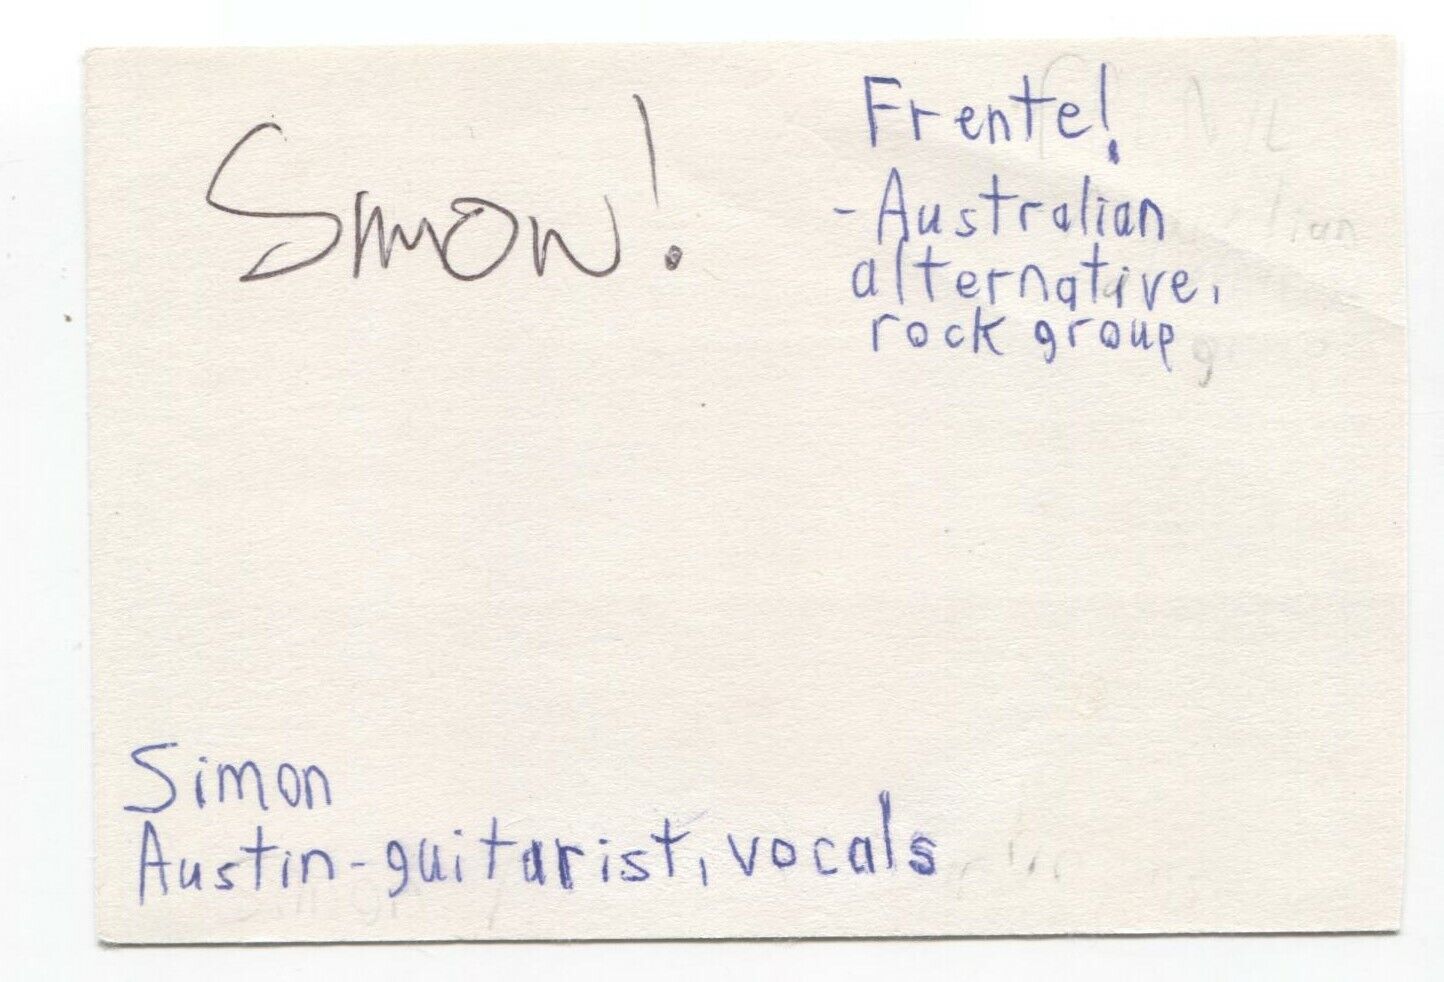 Simon!
Frente!
-Australian
alternative,
rock group
Simon
Austin-guitarist, vocals